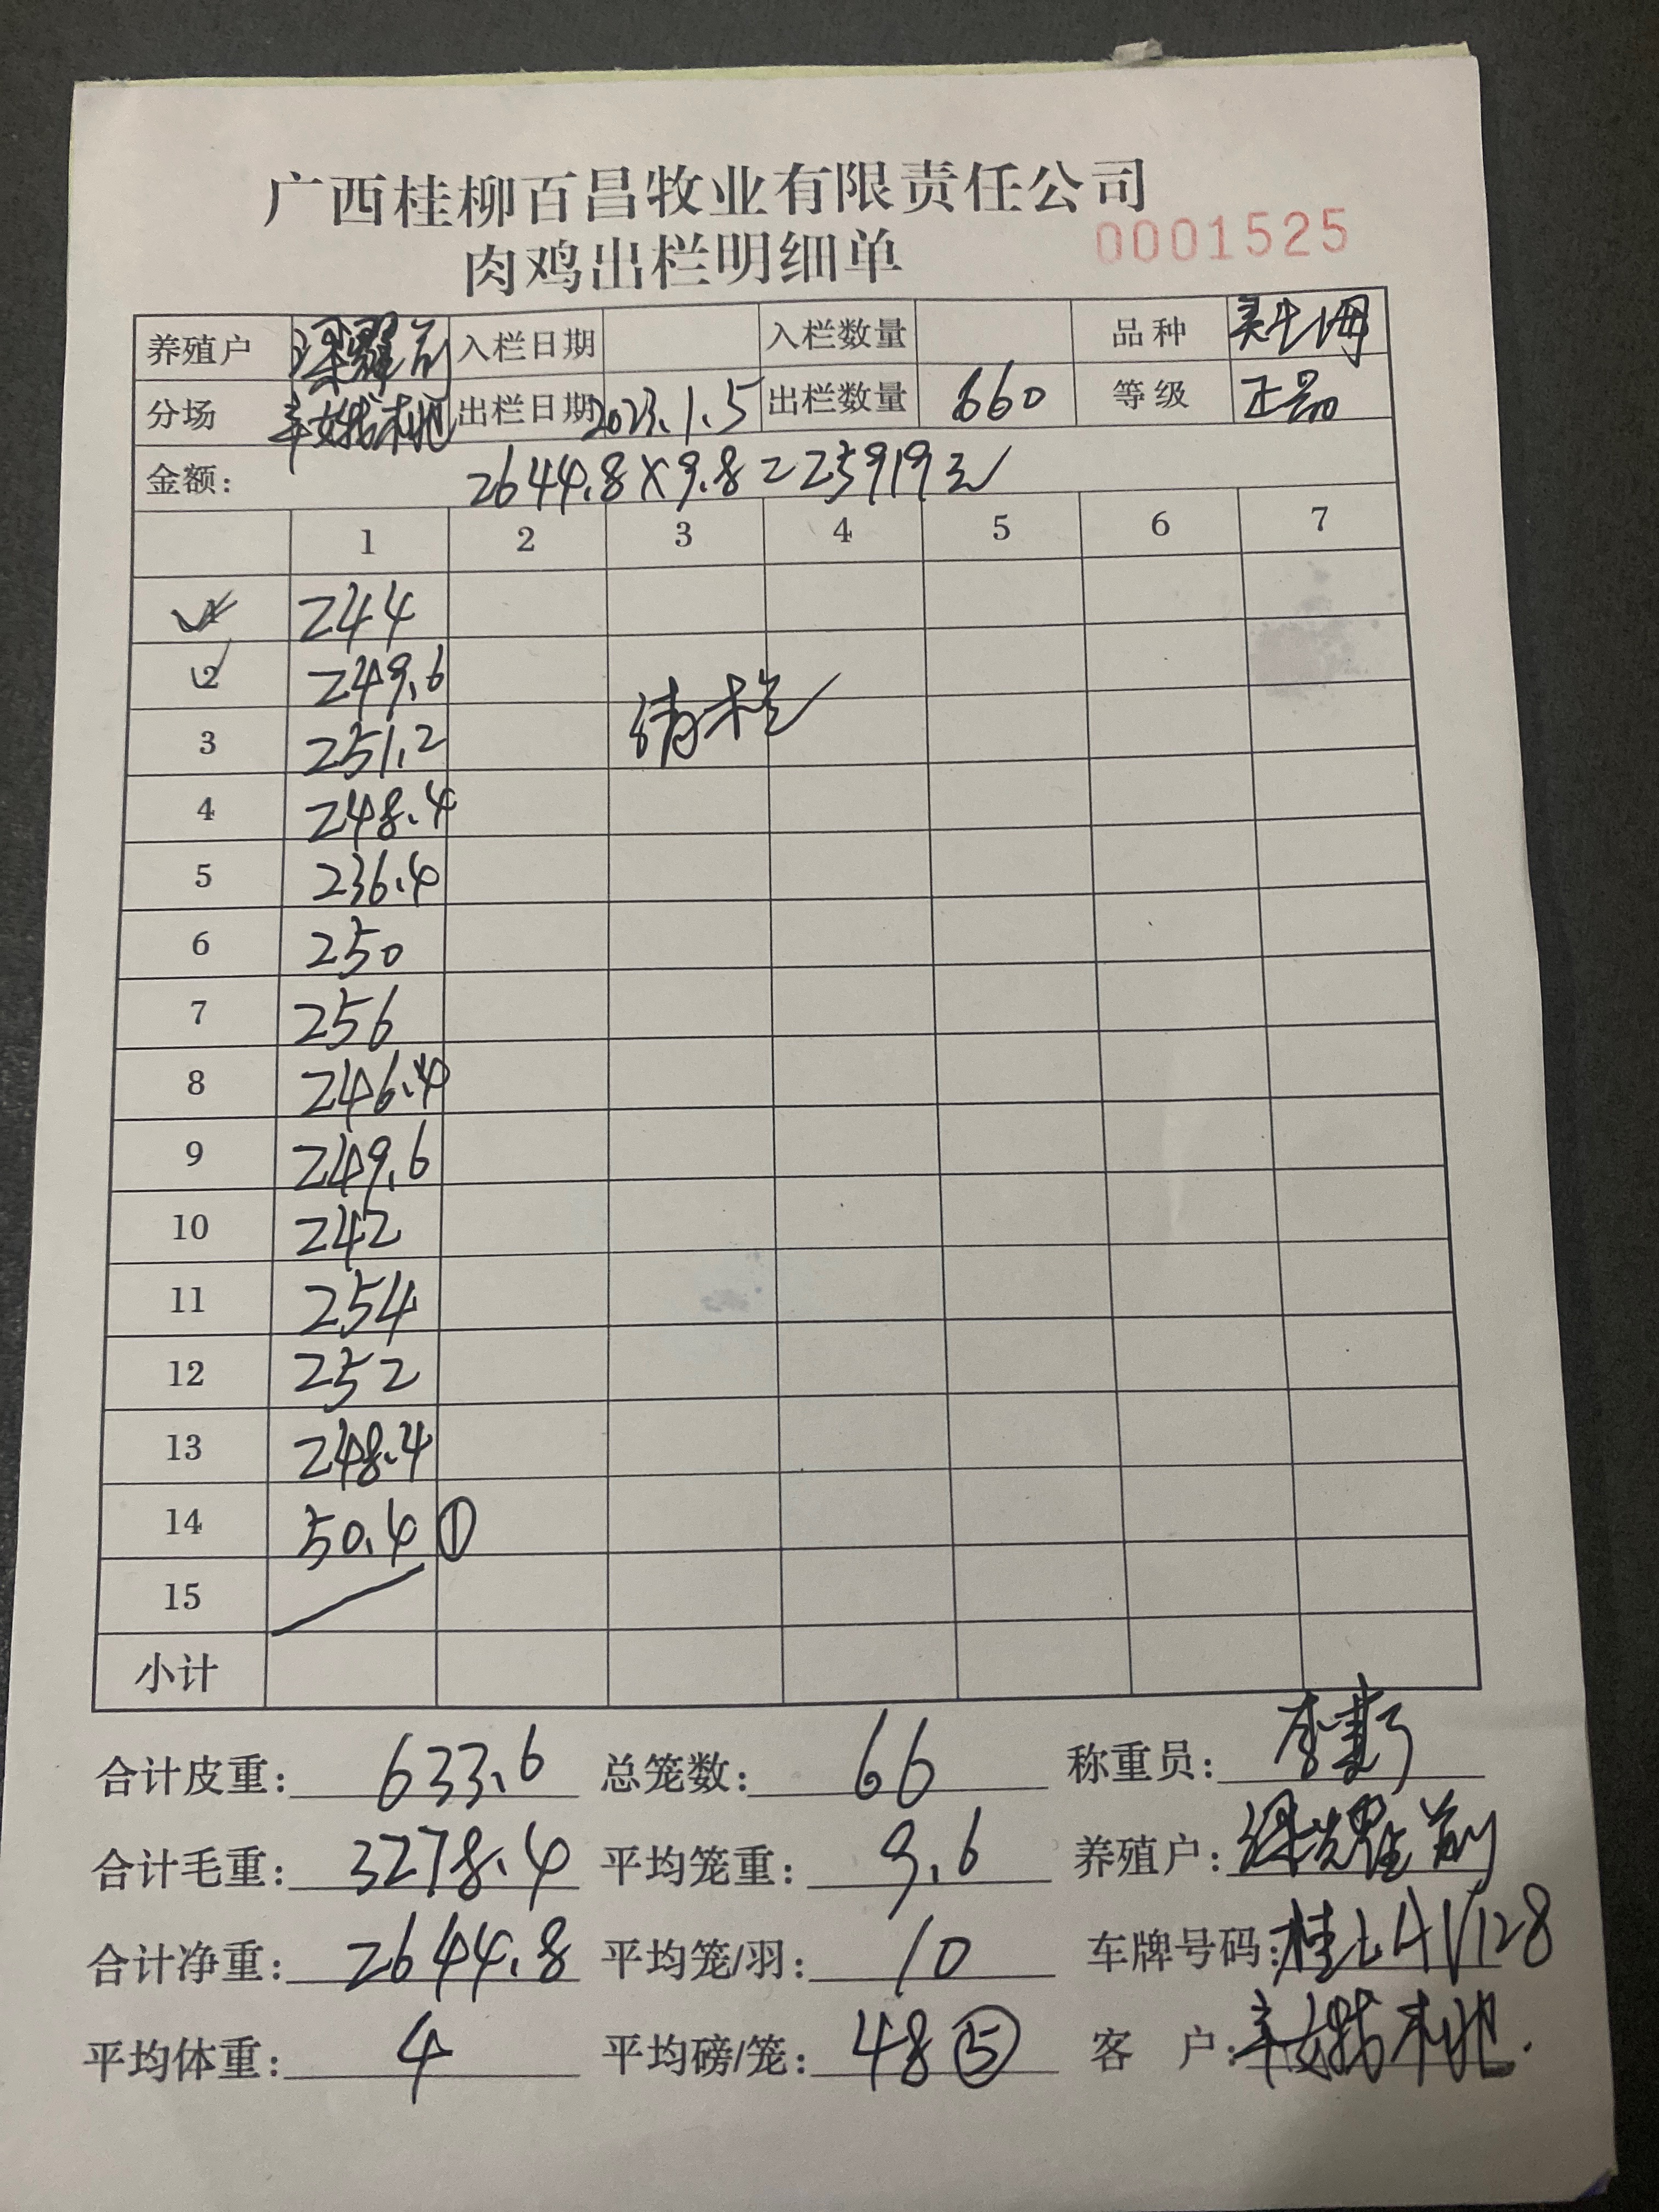 广西桂柳百昌牧业有限责任公司
肉鸡出栏明细单 0001525
养殖户 入栏日期 入栏数量 品种
分场 出栏日期 2023.1.5 出栏数量 660 等级 正品
金额: 2644.8×9.8=25919元
1 2 3 4 5 6 7
1 244
2 249.6
3 251.2 清栏
4 248.4
5 236.4
6 250
7 256
8 246.4
9 249.6
10 242
11 254
12 252
13 248.4
14 50.4 ①
15
小计
合计皮重: 633.6 总笼数: 66 称重员:
合计毛重: 3278.4 平均笼重: 9.6 养殖户:
合计净重: 2644.8 平均笼/羽: 10 车牌号码: 桂LAV128
平均体重: 4 平均磅/笼: 48 ⑤ 客 户: